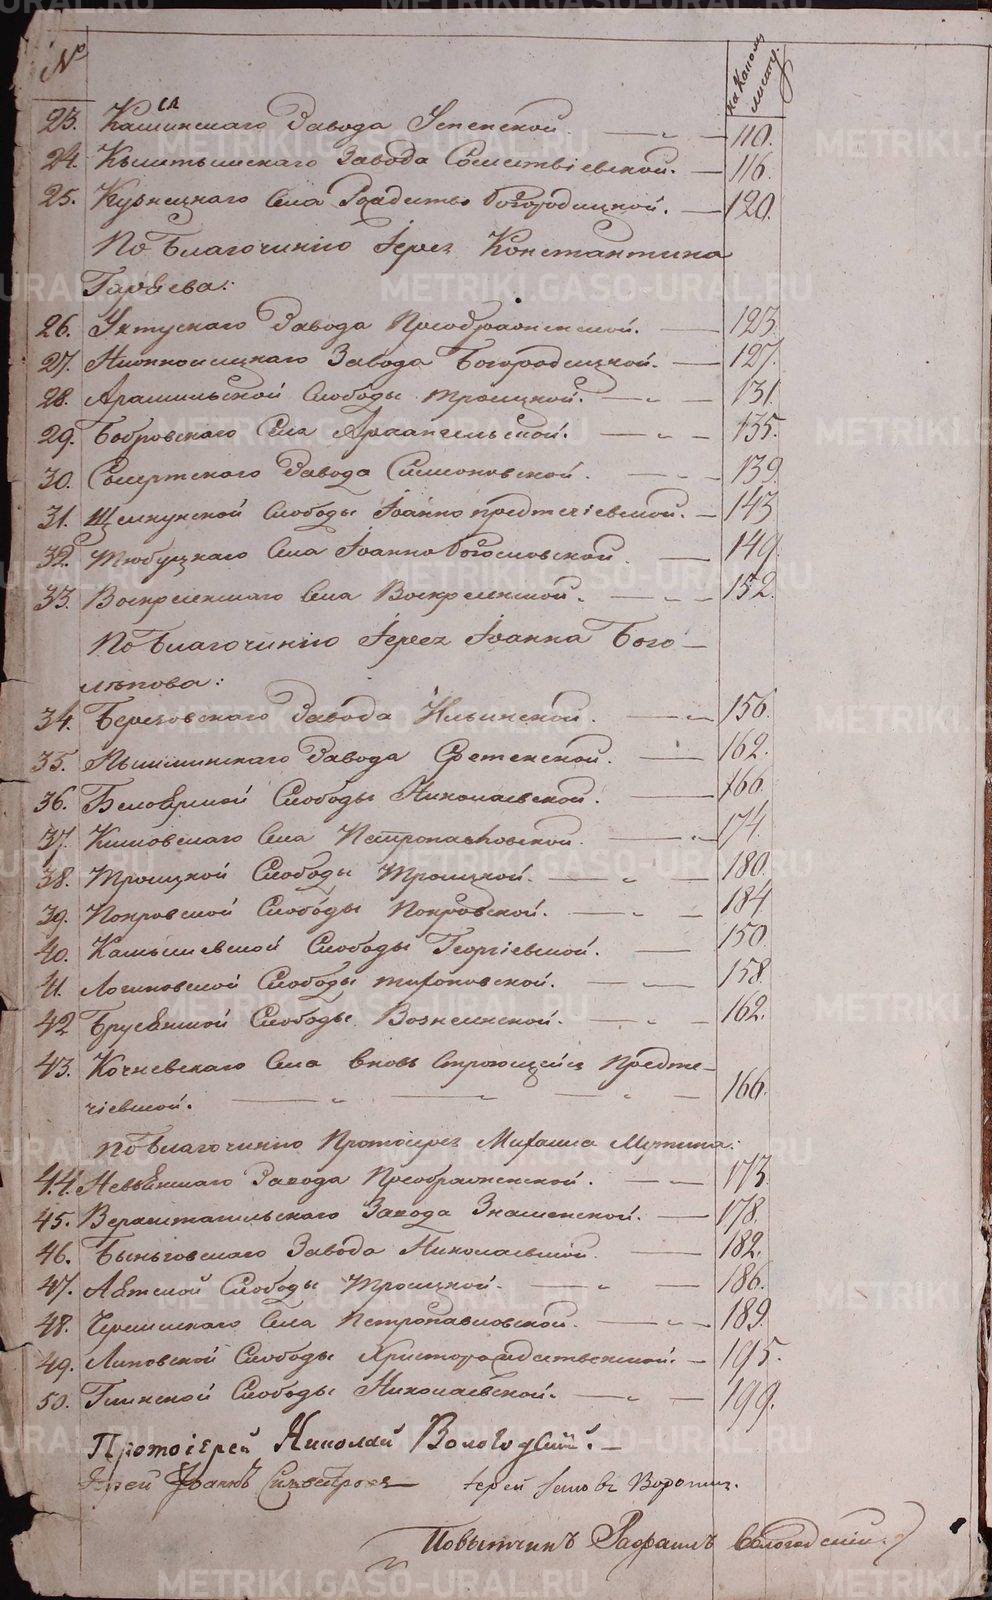 №
на каколъ листу.
23. Каслинскаго Завода Успенской — „ — 110.
24. Кыштымскаго Завода Сошествіевской. — 116.
25. Кузнецкаго Села Рождество Богородицкой. — 120.
По Благочинію Іерея Константина
26. Уктускаго Завода Преображенской. — 123.
27. Нижноисецкаго Завода Богородицкой. — 127.
28. Арамильской Слободы Троицкой. — „ — 131.
29. Бобровскаго Села Архангельской. — „ — 135.
30. Сысертскаго Завода Симеоновской. — „ — 139.
31. Щелкунской Слободы Іоанно предтечіевской. — 143
32. Тюбуцкаго Села Іоанно Богословской — 149.
33. Воскресенскаго Села Воскресенской. — „ — 152.
По Благочинію Іерея Іоанна Бого—
лѣпова:
34. Березовскаго Завода Ильинской. — „ — 156.
35. Пышминскаго Завода Срѣтенской. — 162.
36. Белоярской Слободы Николаевской. — 166.
37. Клиовскаго Села Петропавловской. — „ — 174.
38. Троицкой Слободы Троицкой. — „ — 180.
39. Покровской Слободы Покровской. — „ — 184
40. Камышевской Слободы Георгіевской. — 150.
41. Логиновской Слободы тихоновской. — „ — 158.
42 Брусянской Слободы Вознесенской. — „ — 162.
43. Кочневскаго Села вновь Строющейся Предте—
чіевской. — „ — „ — 166.
По Благочинію Протоіерея Михаила
44. Невьянскаго Завода Преображенской. — 173.
45. Верхтагильскаго Завода Знаменской. — 178.
46. Быньговскаго Завода Николаевской — 182.
47. Аятской Слободы Троицкой. — „ — 186.
48. Черемисскаго Села Петропавловской. — „ — 189.
49. Липовской Слободы Христорождественской. — 195.
50. Глинской Слободы Николаевской. — „ — 199.
Протоіерей Николай Вологодскій. —
Іерей Іоаннъ Силвестровъ Іерей Іаковъ
Повытчикъ Рафаилъ Вологодскій.
METRIKI.GASO-URAL.RU